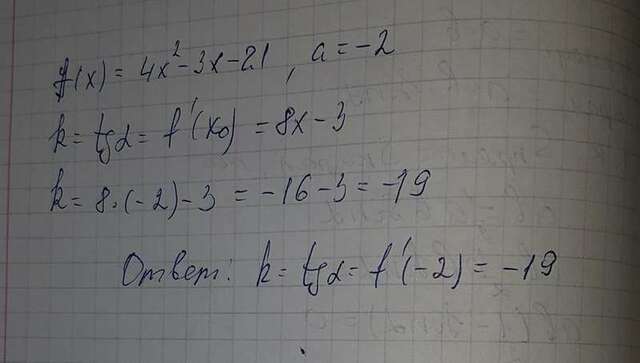 f(x) = 4x² - 3x - 21, a = -2
k = tgα = f'(x₀) = 8x - 3
k = 8·(-2) - 3 = -16 - 3 = -19
Ответ: k = tgα = f'(-2) = -19